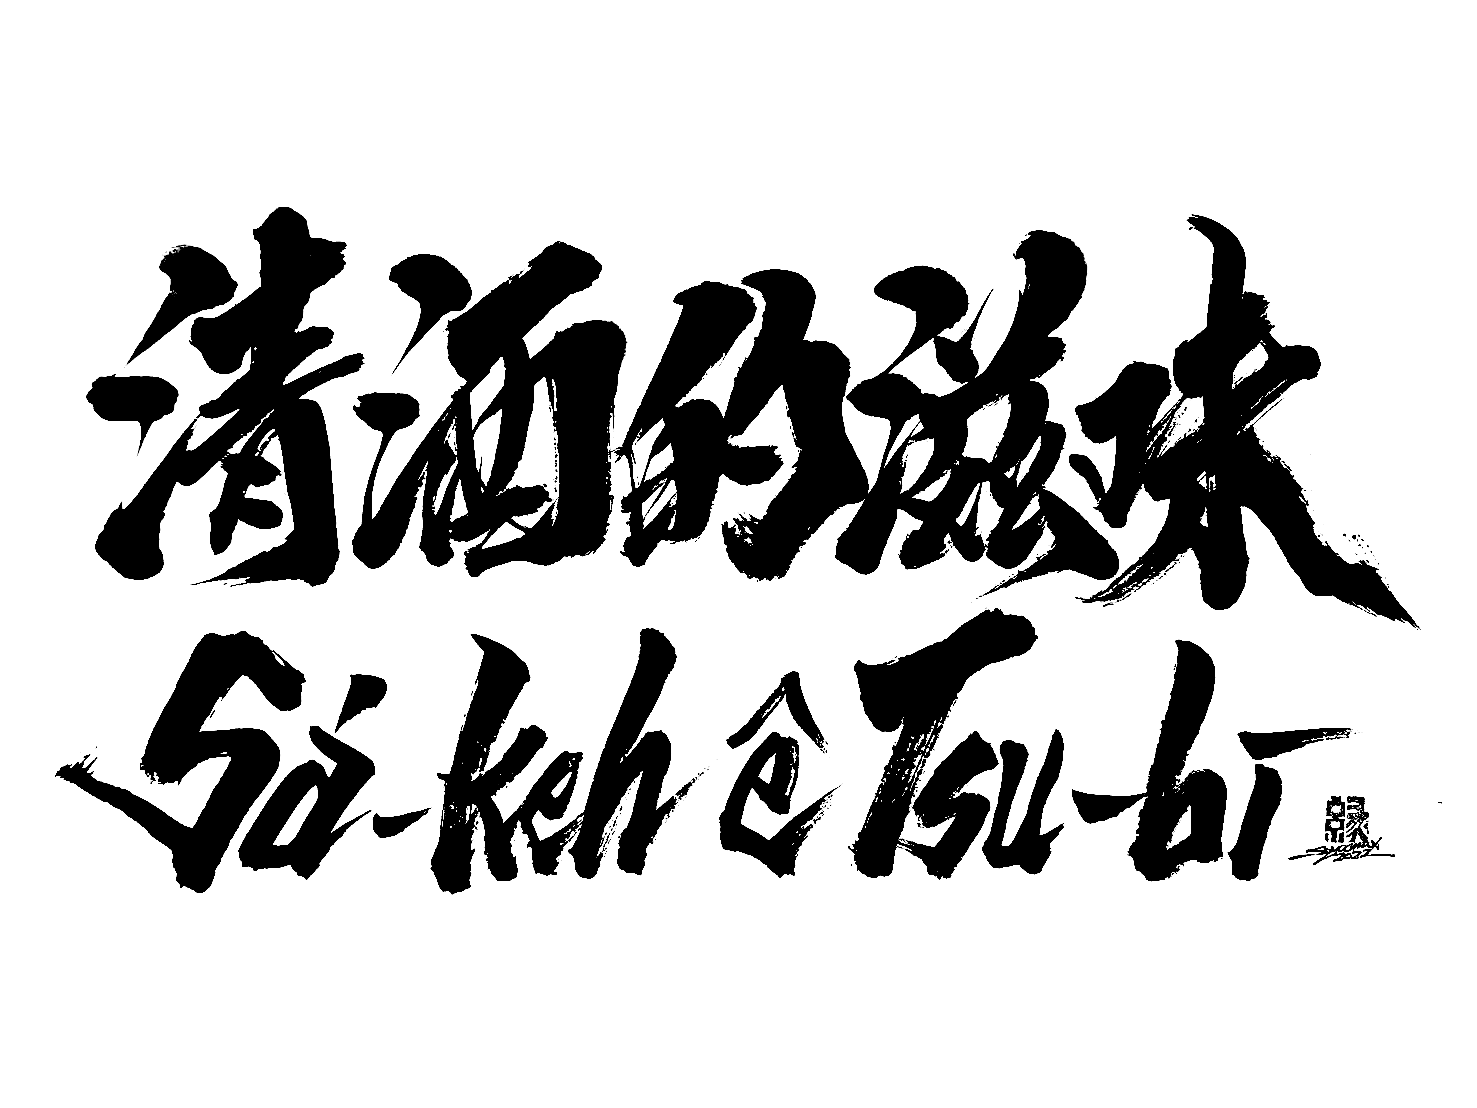 清酒的滋味
Sá-keh ê Tsu-bī